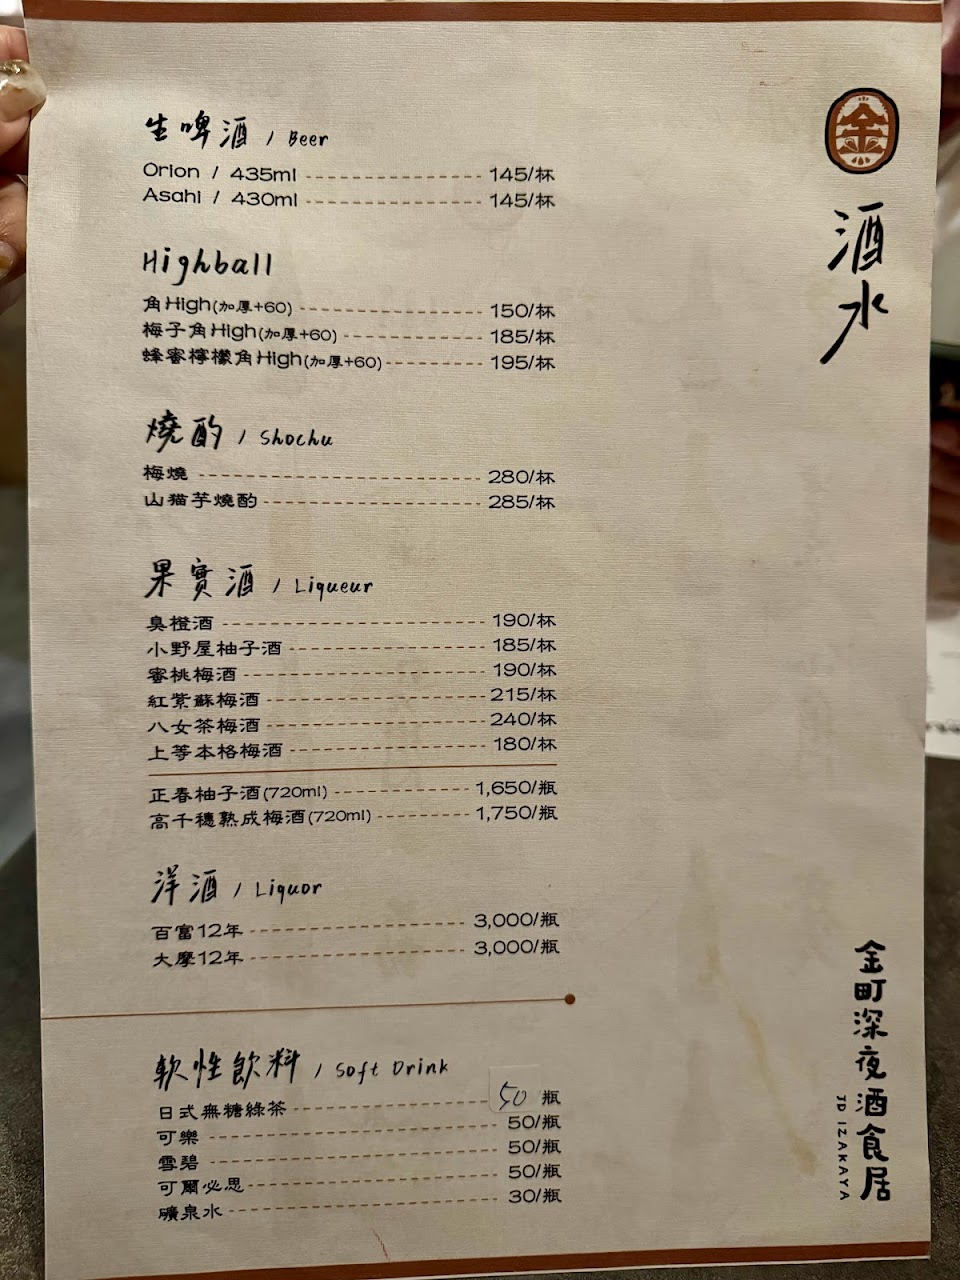 金
酒水
生啤酒 / Beer
Orion / 435ml 145/杯
Asahi / 430ml 145/杯
Highball
角High(加厚+60) 150/杯
梅子角High(加厚+60) 185/杯
蜂蜜檸檬角High(加厚+60) 195/杯
燒酌 / Shochu
梅燒 280/杯
山猫芋燒酌 285/杯
果實酒 / Liqueur
臭橙酒 190/杯
小野屋柚子酒 185/杯
蜜桃梅酒 190/杯
紅紫蘇梅酒 215/杯
八女茶梅酒 240/杯
上等本格梅酒 180/杯
正春柚子酒(720ml) 1,650/瓶
高千穗熟成梅酒(720ml) 1,750/瓶
洋酒 / Liquor
百富12年 3,000/瓶
大摩12年 3,000/瓶
軟性飲料 / Soft Drink
日式無糖綠茶 50 瓶
可樂 50/瓶
雪碧 50/瓶
可爾必思 50/瓶
礦泉水 30/瓶
金町深夜酒食居
JD IZAKAYA